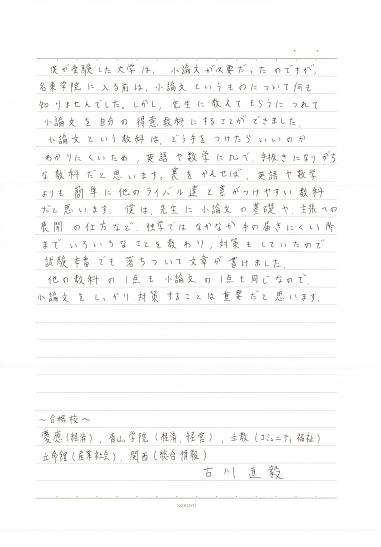 僕が受験した大学は、小論文が必要だったのですが、
名東学院に入る前は、小論文というものについて何も
知りませんでした。しかし、先生に教えてもらうにつれて
小論文を自分の得意教科にすることができました。
小論文という教科は、どう手をつけたらいいのか
わかりにくいため、英語や数学に比べ、手抜きになりがち
な教科だと思います。裏をかえせば、英語や数学
よりも簡単に他のライバル達と差がつけやすい教科
だと思います。僕は、先生に小論文の基礎や、主張への
展開の仕方など、独学ではなかなか手の届きにくい所
までいろいろなことを教わり、対策もしていたので
試験本番でも落ちついて文章が書けました。
他の教科の1点も小論文の1点も同じなので、
小論文をしっかり対策することは重要だと思います。
～合格校～
慶應(経済)、青山学院(経済、経営)、立教(コミュニティ福祉)
立命館(産業社会)、関西(総合情報)
古川直毅
KOKUYO